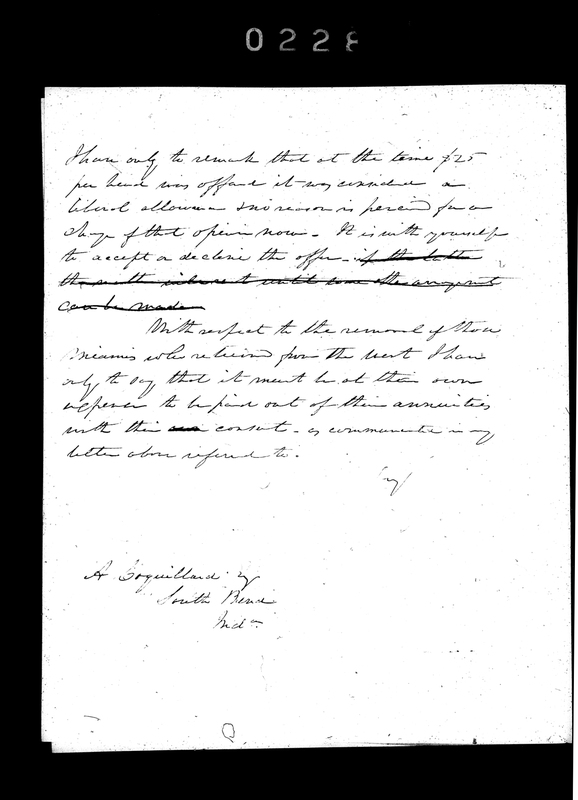 0228
I have only to remark that at the time $25
per head was offered it was considered a
liberal allowance & no reason is perceived for a
change of that opinion now - It is with yourself
to accept or decline the offer - if the latter
the matter until some other arrangements
can be made
With respect to the removal of those
Miamis who returned from the west I have
only to say that it must be at their own
expense to be paid out of their annuities
with their consent - as communicated in my
letter above referred to.
A Coquillard
South Bend
Inda